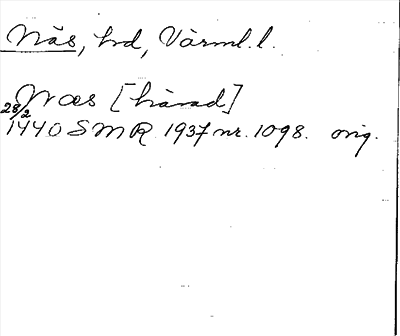 Näs, hd, Värml.l.
Næs [härad]
28/2
1440 SMR 1937 nr. 1098. orig.